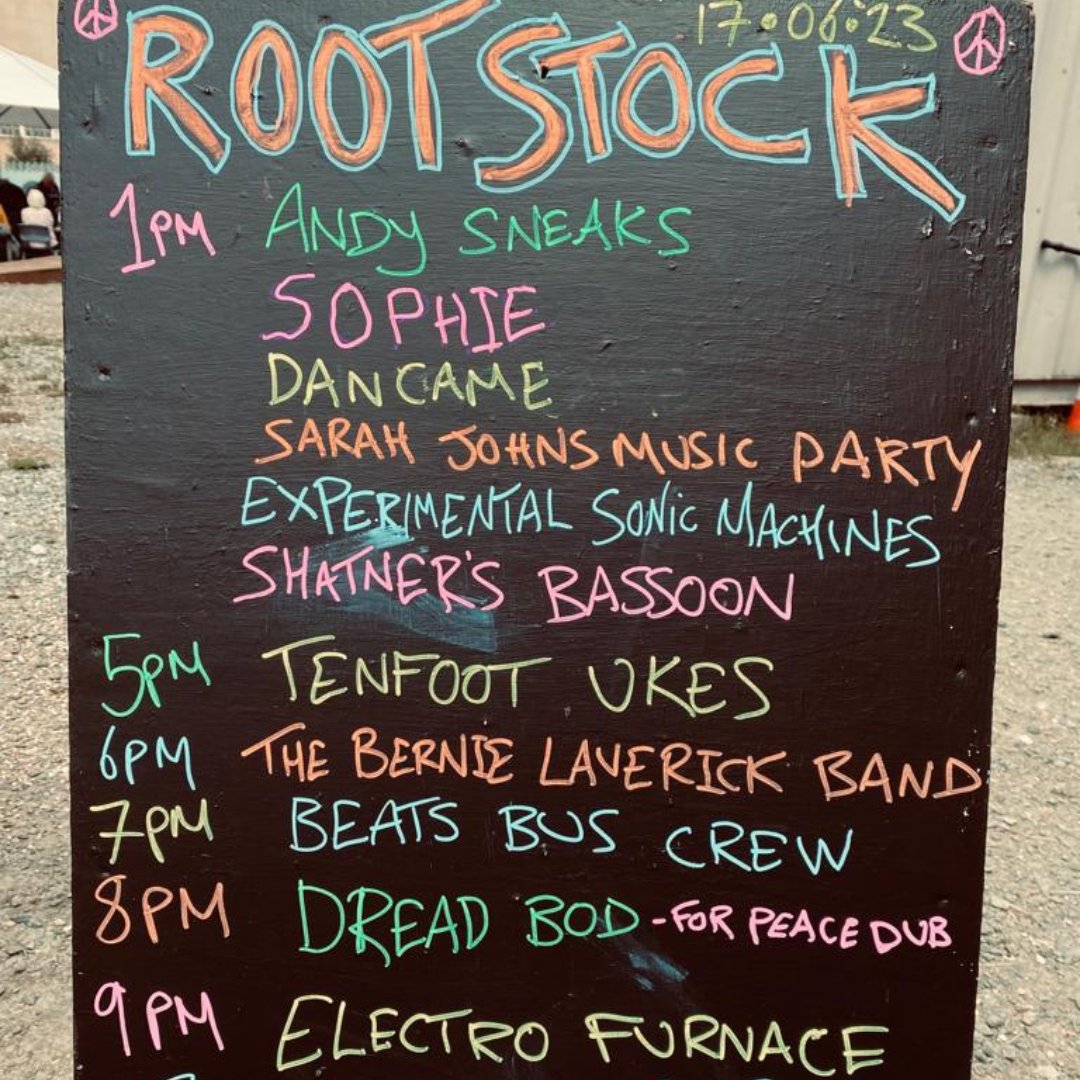 17.06.23
ROOTSTOCK
1PM ANDY SNEAKS
SOPHIE
DAN CAME
SARAH JOHNS MUSIC PARTY
EXPERIMENTAL SONIC MACHINES
SHATNER'S BASSOON
5PM TENFOOT UKES
6PM THE BERNIE LAVERICK BAND
7PM BEATS BUS CREW
8PM DREAD BOD - FOR PEACE DUB
9PM ELECTRO FURNACE